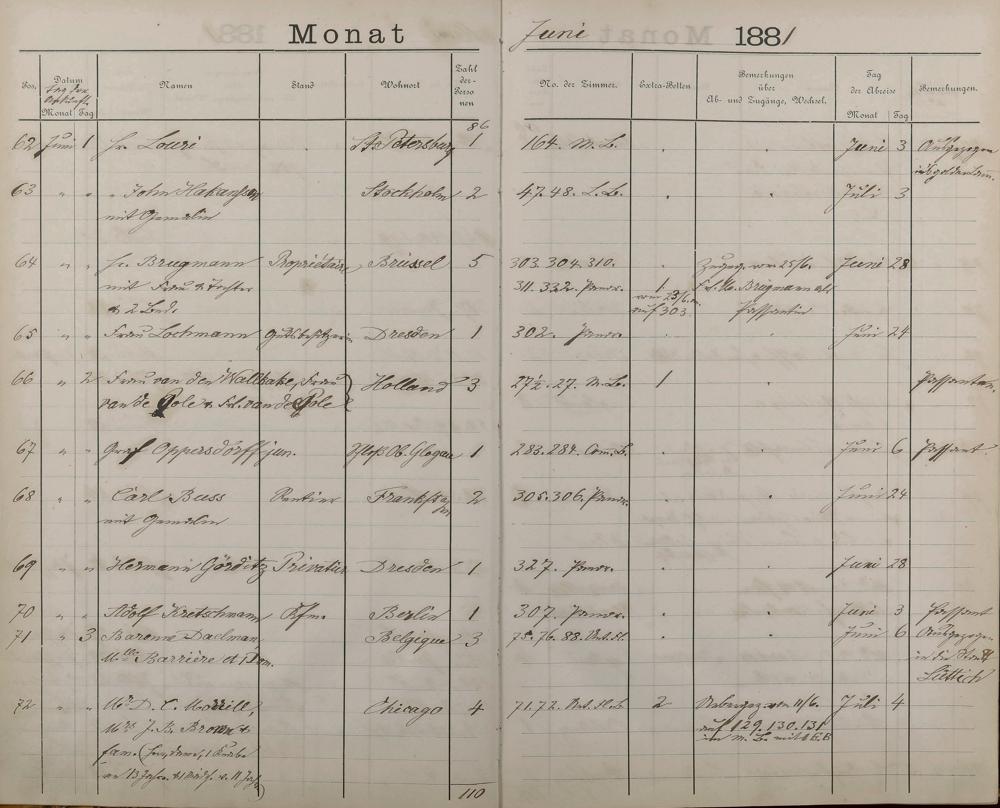 Monat Juni 1881
Pos. Datum Tag der Ankunft. Monat Tag Namen Stand Wohnort Zahl der Perso nen No. der Zimmer. Extra-Betten. Bemerkungen über Ab- und Zugänge, Wechsel. Tag der Abreise Monat Tag Bemerkungen.
86
62 Juni 1 Hr. Louri St. Petersburg 1 164. M.B. Juni 3 Ausgezogen
63 " " " John Hakansson Stockholm 2 47.48. L.B. Juli 3
mit Gemalin
64 " " Hr. Brugmann Propriétaire Brüssel 5 303.304.310. Zugang vom 25/6. Juni 28
mit Frau & Tochter 311.332. 1 Frl. M. Brugmann als
& 2 Bed. vom 25/6. auf 303 Passantin
65 " " Frau Lochmann Gutsbesitzerin Dresden 1 302. Juni 24
66 " 2 Frau van den Wallbake, Frau Holland 3 27½.27. M.B. 1 Passanten.
van de Pole & Frl. van de Pole
67 " " Graf Oppersdorff jun. Schloß Ob. Glogau 1 283.284. Juni 6 Passant.
68 " " Carl Buss Rentier 2 305.306. Juni 24
mit Gemalin
69 " " Hermann Görditz Privatier Dresden 1 327. Juni 28
70 " " Adolf Kretschmann Kfm. Berlin 1 307. Juni 3 Passant
71 " 3 Baronne Daelman, Belgique 3 75.76.88. Juni 6 Ausgezogen
Mlle Barrière et 1 Dom. in die Stadt
Lüttich
72 Mr. D. C. Morrill, Chicago 4 71.72. 2 Uebergez. am 11/6. Juli 4
Mrs J. B. Brown & auf 129.130.131
fam. (Herr, Dame, 1 Knabe im M.B. mit 1 E.B
von 13 Jahr. & 1 Mädch. v. 11 Jahr)
110